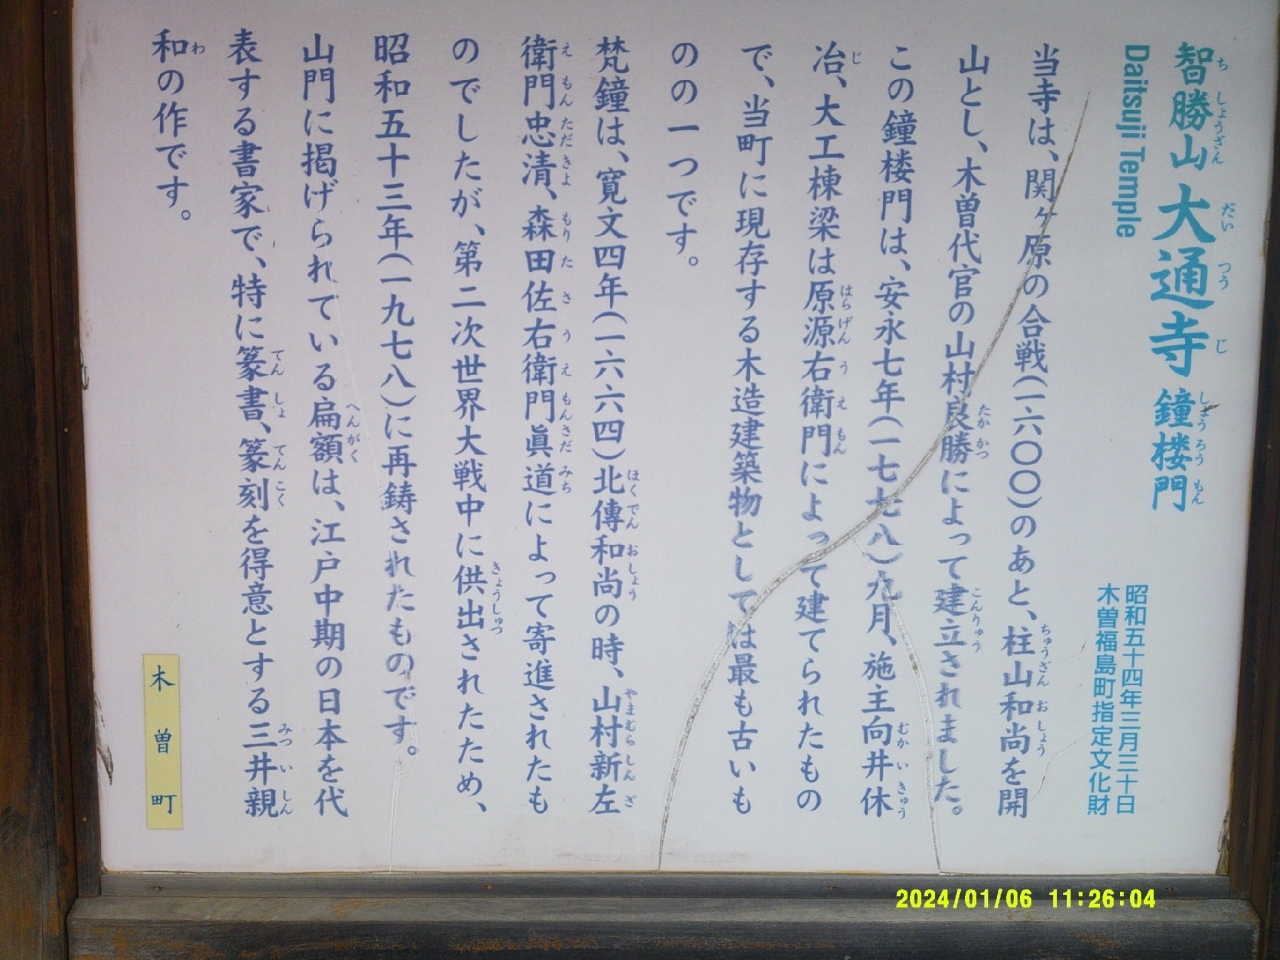 智勝山 大通寺 鐘楼門
Daitsuji Temple
昭和五十四年三月三十日
木曽福島町指定文化財
当寺は、関ヶ原の合戦(一六〇〇)のあと、柱山和尚を開
山とし、木曽代官の山村良勝によって建立されました。
この鐘楼門は、安永七年(一七七八)九月、施主向井休
冶、大工棟梁は原源右衛門によって建てられたもの
で、当町に現存する木造建築物としては最も古いも
のの一つです。
梵鐘は、寛文四年(一六六四)北傳和尚の時、山村新左
衛門忠清、森田佐右衛門眞道によって寄進されたも
のでしたが、第二次世界大戦中に供出されたため、
昭和五十三年(一九七八)に再鋳されたものです。
山門に掲げられている扁額は、江戸中期の日本を代
表する書家で、特に篆書、篆刻を得意とする三井親
和の作です。
木曽町
2024/01/06 11:26:04